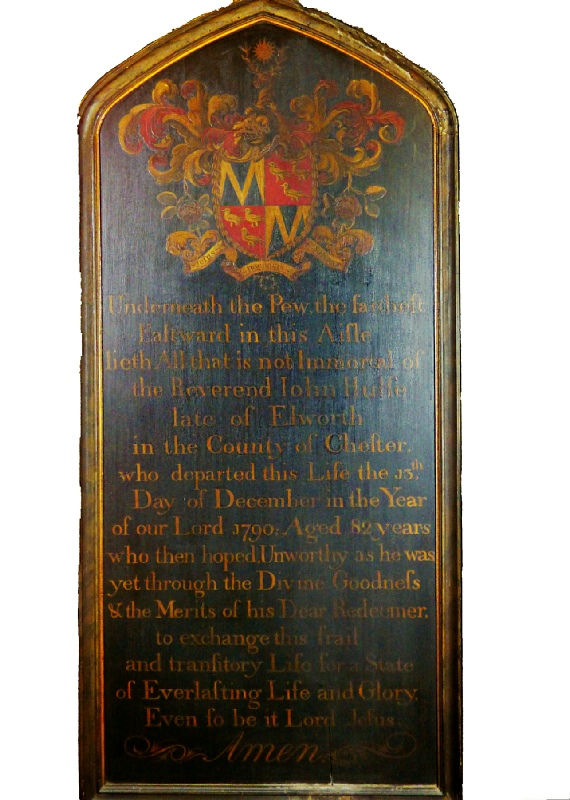 M
M
Underneath the Pew, the fartheſt
Eaſtward in this Aiſle
lieth All that is not Immortal of
the Reverend John Hulſe
late of Elworth
in the County of Cheſter,
who departed this Life the 13th
Day of December in the Year
of our Lord 1790: Aged 82 years
who then hoped, Unworthy as he was
yet through the Divine Goodneſs
& the Merits of his Dear Redeemer,
to exchange this frail
and tranſitory Life for a State
of Everlaſting Life and Glory.
Even ſo be it Lord Jeſus.
Amen.